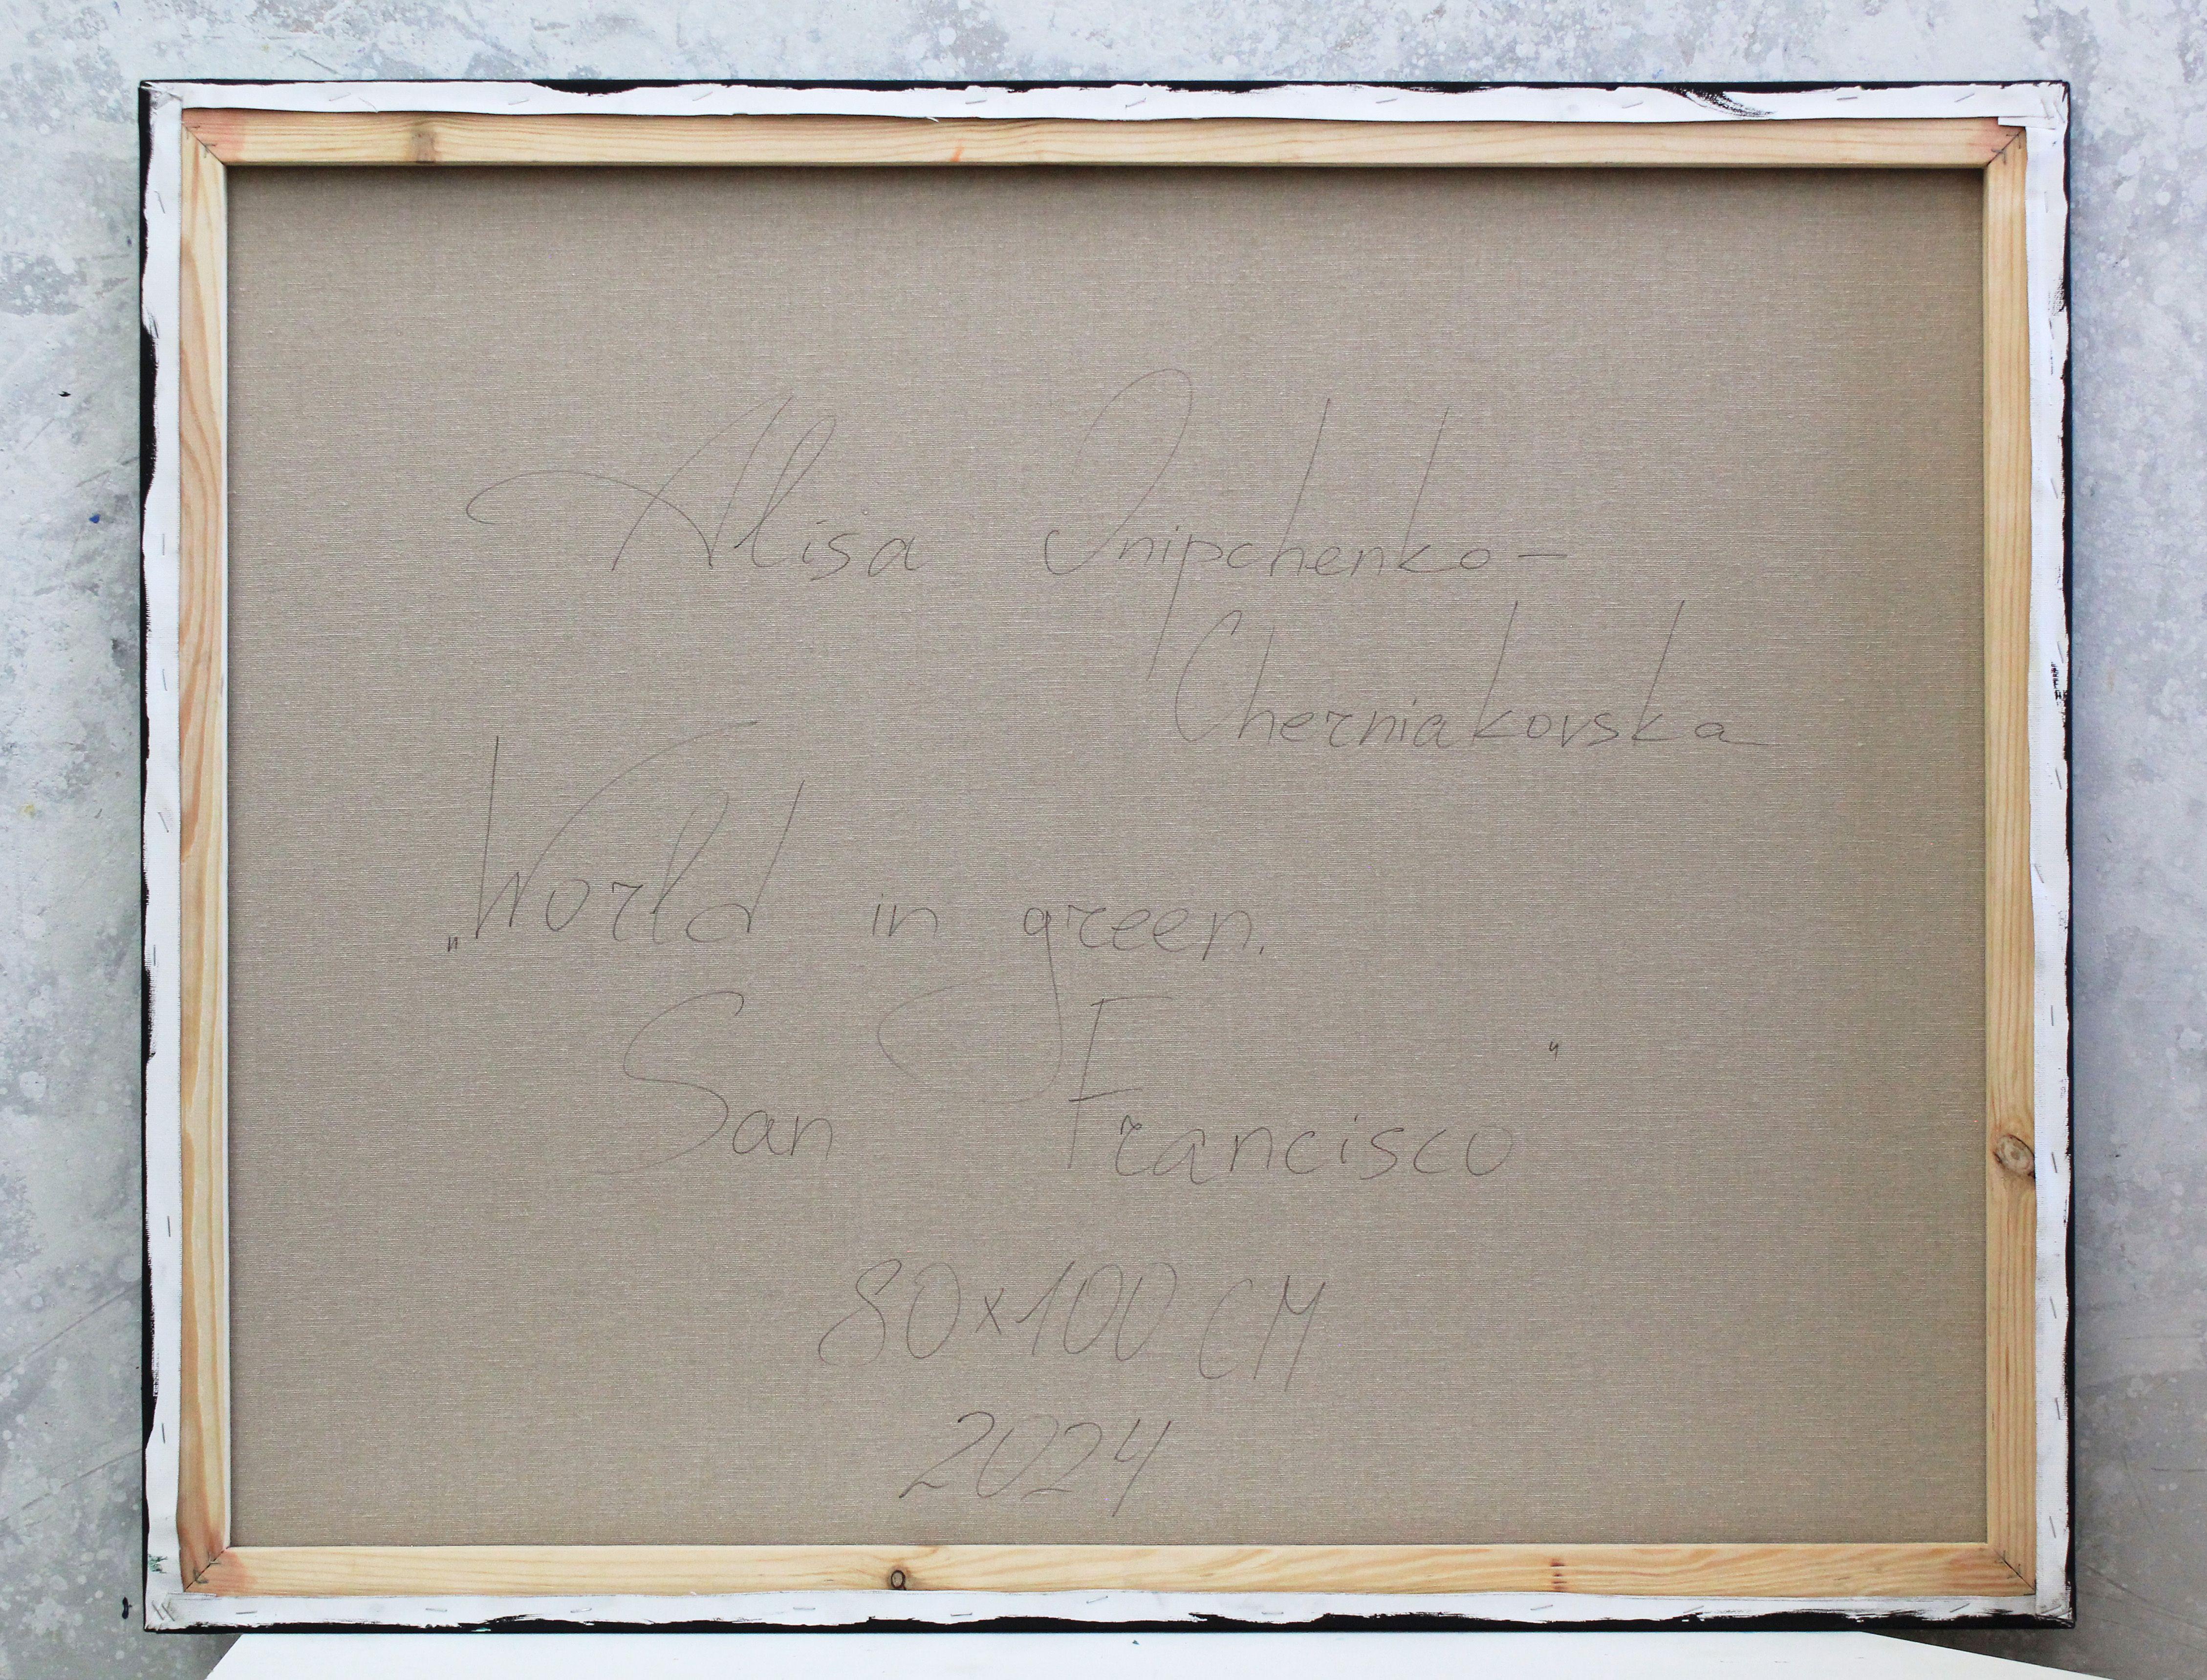 Alisa Onipchenko-
Cherniakovska
„World in green.
San Francisco"
80x100 CM
2024